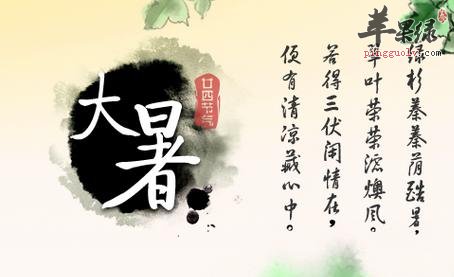 苹果绿
pingguolv.com
大暑
廿四节气
绿杉蓁蓁荫酷暑,
叶荣荣滤燠风。
若得三伏闲情在,
便有清凉藏心中。